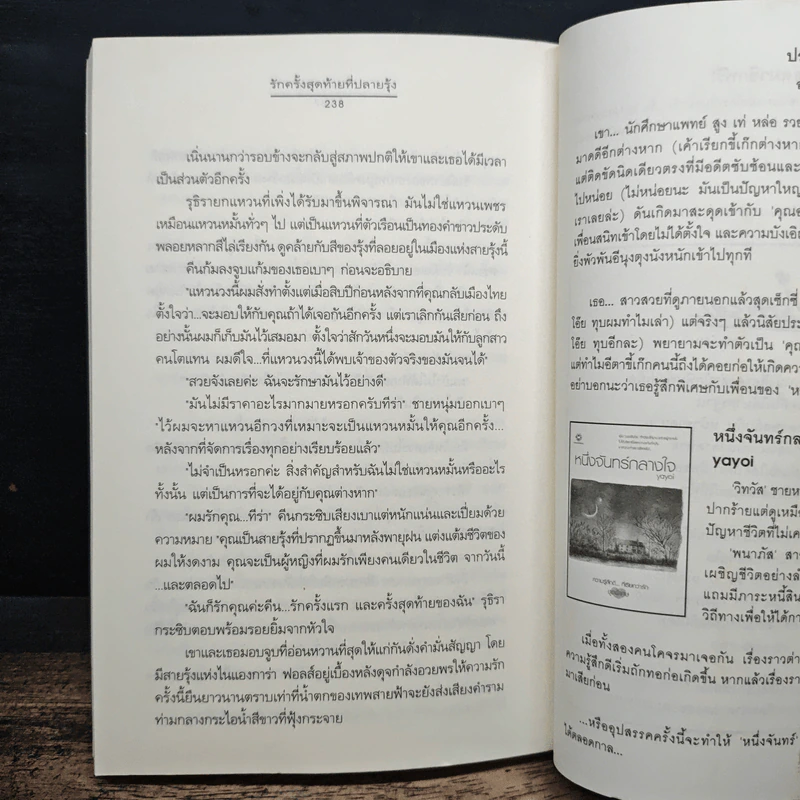 รักครั้งสุดท้ายที่ปลายรุ้ง
238
เนิ่นนานกว่ารอบข้างจะกลับสู่สภาพปกติให้เขาและเธอได้มีเวลา
เป็นส่วนตัวอีกครั้ง
รุธิรายกแหวนที่เพิ่งได้รับมาขึ้นพิจารณา มันไม่ใช่แหวนเพชร
เหมือนแหวนหมั้นทั่วๆ ไป แต่เป็นแหวนที่ตัวเรือนเป็นทองคำขาวประดับ
พลอยหลากสีไล่เรียงกัน ดูคล้ายกับสีของรุ้งที่ลอยอยู่ในเมืองแห่งสายรุ้งนี้
คืนก้มลงจูบแก้มของเธอเบาๆ ก่อนจะอธิบาย
"แหวนวงนี้ผมสั่งทำตั้งแต่เมื่อสิบปีก่อนหลังจากที่คุณกลับเมืองไทย
ตั้งใจว่า...จะมอบให้กับคุณถ้าได้เจอกันอีกครั้ง แต่เราเลิกกันเสียก่อน ถึง
อย่างนั้นผมก็เก็บมันไว้เสมอมา ตั้งใจว่าสักวันหนึ่งจะมอบมันให้กับลูกสาว
คนโตแทน ผมดีใจ...ที่แหวนวงนี้ได้พบเจ้าของตัวจริงของมันจนได้"
"สวยจังเลยค่ะ ฉันจะรักษามันไว้อย่างดี"
"มันไม่มีราคาอะไรมากมายหรอกครับทีร่า" ชายหนุ่มบอกเบาๆ
"ไว้ผมจะหาแหวนอีกวงที่เหมาะจะเป็นแหวนหมั้นให้คุณอีกครั้ง...
หลังจากที่จัดการเรื่องทุกอย่างเรียบร้อยแล้ว"
"ไม่จำเป็นหรอกค่ะ สิ่งสำคัญสำหรับฉันไม่ใช่แหวนหมั้นหรืออะไร
ทั้งนั้น แต่เป็นการที่จะได้อยู่กับคุณต่างหาก"
"ผมรักคุณ...ทีร่า" คืนกระซิบเสียงเบาแต่หนักแน่นและเปี่ยมด้วย
ความหมาย "คุณเป็นสายรุ้งที่ปรากฏขึ้นมาหลังพายุฝน แต่งแต้มชีวิตของ
ผมให้งดงาม คุณจะเป็นผู้หญิงที่ผมรักเพียงคนเดียวในชีวิต จากวันนี้
...และตลอดไป"
"ฉันก็รักคุณค่ะคืน...รักครั้งแรก และครั้งสุดท้ายของฉัน" รุธิรา
กระซิบตอบพร้อมรอยยิ้มจากหัวใจ
เขาและเธอมอบจูบที่อ่อนหวานที่สุดให้แก่กันดั่งคำมั่นสัญญา โดย
มีสายรุ้งแห่งไนแองการ่า ฟอลส์อยู่เบื้องหลังดุจกำลังอวยพรให้ความรัก
ครั้งนี้ยืนยาวนานตราบเท่าที่น้ำตกของเทพสายฟ้าจะยังส่งเสียงคำราม
ท่ามกลางกระไอน้ำสีขาวที่ฟุ้งกระจาย
เขา... นักศึกษาแพทย์ สูง เท่ หล่อ รวย
มาดดีอีกต่างหาก (เค้าเรียกขี้เก๊กต่างหา
แต่ติดขัดนิดเดียวตรงที่มีอดีตซับซ้อนและ
ไปหน่อย (ไม่หน่อยนะ มันเป็นปัญหาใหญ
เราเลยล่ะ) ดันเกิดมาสะดุดเข้ากับ 'คุณ
เพื่อนสนิทเข้าโดยไม่ได้ตั้งใจ และความบังเอิ
ยิ่งพัวพันอีนุงตุงนังหนักเข้าไปทุกที
เธอ... สาวสวยที่ดูภายนอกแล้วสุดเซ็กซี่
โอ๊ย ทุบผมทำไมเล่า) แต่จริงๆ แล้วนิสัยประ
โอ๊ย ทุบอีกละ) พยายามจะทำตัวเป็น 'คุณ
แต่ทำไมอีตาขี้เก๊กคนนี้ถึงได้คอยก่อให้เกิดคว
อย่าบอกนะว่าเธอรู้สึกพิเศษกับเพื่อนของ 'ห
หนึ่งจันทร์กลางใจ
yayoi
หนึ่งจันทร์กล
yayoi
'วิทวัส' ชายห
ปากร้ายแต่ดูเหมื
ปัญหาชีวิตที่ไม่เค
'พนาภัส' สา
เผชิญชีวิตอย่างลํ
แถมมีภาระหนี้สิน
วิถีทางเพื่อให้ได้กา
เมื่อทั้งสองคนโคจรมาเจอกัน เรื่องราวต่า
ความรู้สึกดีเริ่มถักทอก่อเกิดขึ้น หากแล้วเรื่องรา
มาเสียก่อน
...หรืออุปสรรคครั้งนี้จะทำให้ 'หนึ่งจันทร์'
ได้ตลอดกาล...